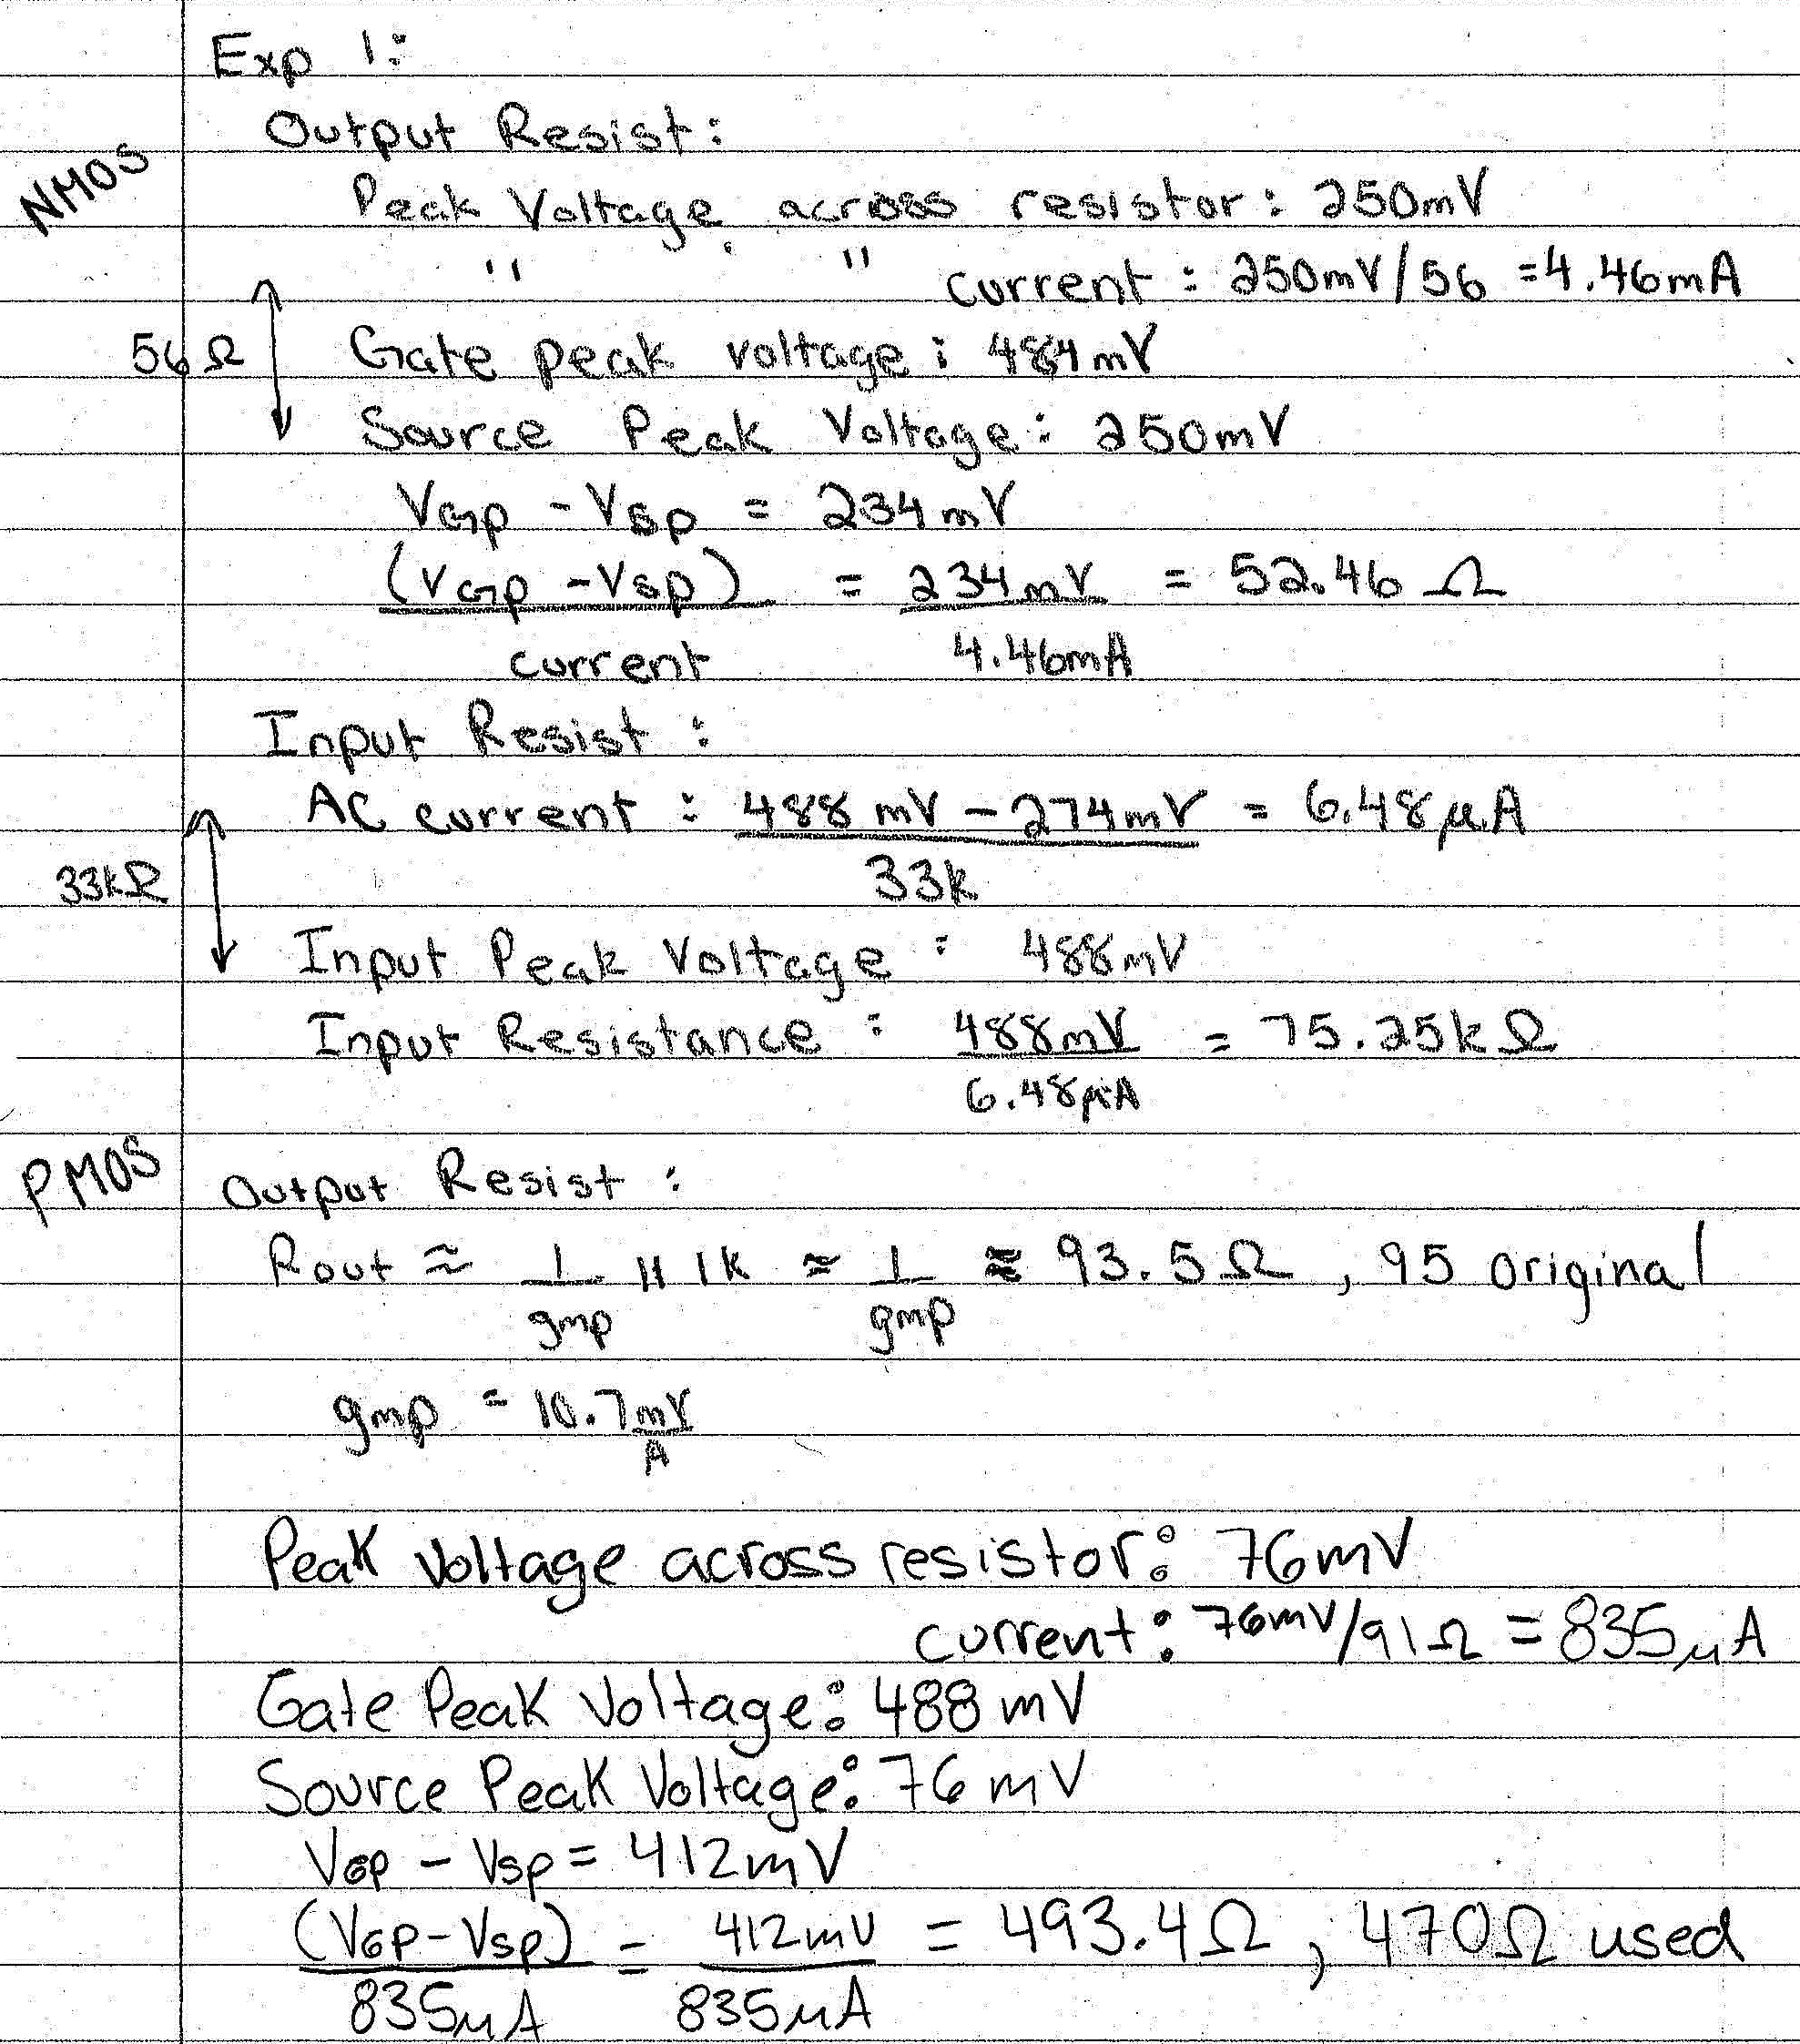 Exp 1:
Output Resist:
NMOS
Peak Voltage across resistor: 250mV
" " current: 250mV/56 = 4.46mA
56Ω Gate peak voltage: 484mV
Source Peak Voltage: 250mV
VGp - VSp = 234mV
(VGp - VSp) = 234mV = 52.46 Ω
current 4.46mA
Input Resist:
AC current: 488 mV - 274mV = 6.48μA
33kΩ 33k
Input Peak Voltage: 488mV
Input Resistance: 488mV = 75.25kΩ
6.48μA
PMOS Output Resist:
Rout ≈ 1 || 1k ≈ 1 ≈ 93.5Ω, 95 original
gmp gmp
gmp = 10.7 mV
A
Peak Voltage across resistor: 76mV
current: 76mV/91Ω = 835μA
Gate Peak Voltage: 488 mV
Source Peak Voltage: 76 mV
VGp - VSp = 412mV
(VGp - VSp) = 412mV = 493.4Ω, 470Ω used
835μA 835μA